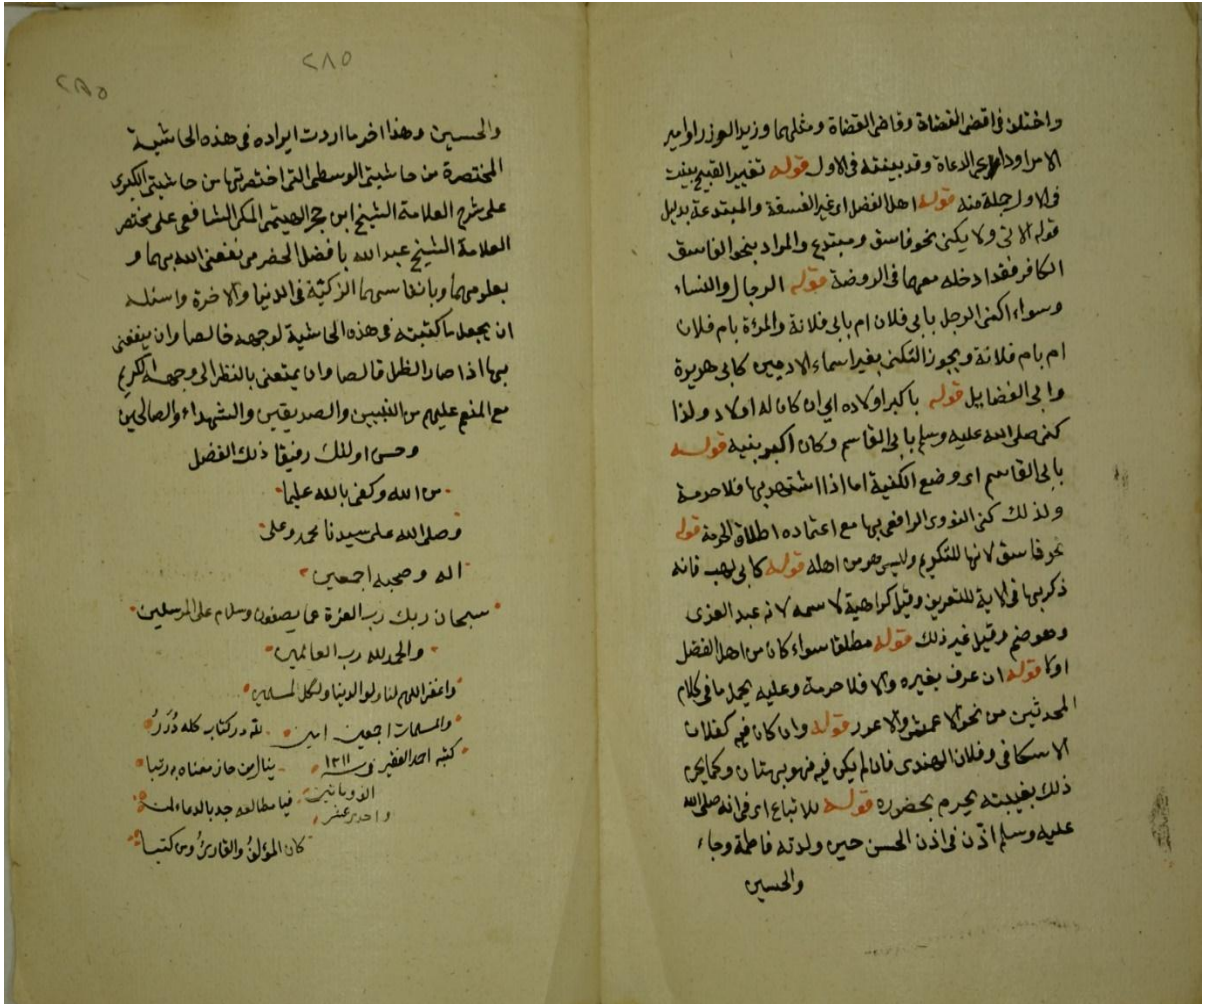 واختلف في اقضى القضاة وقاضى القضاة ومثلهما وزير الوزرا وامير
الامرا وداعي الدعاة وقد بينته في الاول قوله تغيير القبيح بينت
في الاول جملة منه قوله اهل الفضل اي غير الفسقة والمبتدعة بدليل
قوله الاتى ولا يكنى نحو فاسق ومبتدع والمراد بنحو الفاسق
الكافر فقد ادخله معهما في الروضة قوله الرجال والنساء
وسواء اكنى الرجل بابى فلان ام بابى فلانة والمرٔة بام فلان
ام بام فلانة ويجوز التكنى بغير اسماء الادميين كابى هريرة
وابى الفضايل قوله باكبر اولاده اي ان كان له اولاد ولذا
كنى صلى الله عليه وسلم بابى القاسم وكان اكبر بنيه قوله
بابى القاسم اى وضع الكنية اما اذا اشتهر بها فلا حرمة
ولذلك كنى النووى الرافعى بها مع اعتماده اطلاق الحرمة قوله
نحو فاسق لانها للتكريم وليس هو من اهله قوله كابى لهب فانه
ذكر بها في الاية للتعريف وقيل كراهية لاسمه لانه عبد العزى
وهو صنم وقيل غير ذلك قوله مطلقا سواء كان من اهل الفضل
اولا قوله ان عرف بغيره والا فلا حرمة وعليه يحمل ما في كلام
المحدثين من نحو الاعمش والاعور قوله وان كان فيه كفلان
الاسكافى وفلان الهندى فان لم يكن فيه فهو بهتان وكما يحرم
ذلك بغيبته يحرم بحضوره قوله للاتباع اى في انه صلى الله
عليه وسلم اذّن في اذن الحسن حين ولدته فاطمة وجاء
والحسين
٢٨٥
٢٨٥
والحسين وهذا اخر ما اردت ايراده في هذه الحاشية
المختصرة من حاشيتى الوسطى التى اختصرتها من حاشيتى الكبرى
على شرح العلامة الشيخ ابن حجر الهيتمى المكى الشافعى على مختصر
العلامة الشيخ عبد الله بافضل الحضرمى نفعنى الله بهما و
بعلومهما وبانفاسهما الزكيّة في الدنيا والاخرة واسئله
ان يجعل ما كتبته في هذه الحاشية لوجهه خالصا وان ينفعنى
بها اذا صار الظل قالصا وان يمتعنى بالنظر الى وجهه الكريم
مع المنعم عليهم من النبيين والصديقين والشهداء والصالحين
وحسن اولئك رفيقا ذلك الفضل
من الله وكفى بالله عليما
وصلى الله على سيدنا محمد وعلى
اله وصحبه اجمعين
سبحان ربك رب العزة عما يصفون وسلام على المرسلين
والحمد لله رب العالمين
واغفر اللهم لنا ولوالدينا ولكل المسلمين
والمسلمات اجمعين امين
كتبه احمد الفقير في سنة ١٣١١
واحدى عشر
لله در كتاب كله دُرَرُ
ينال من حاز معناه رتبا
فيا مطالعه جد بالدعاء لمن
كان المؤلفُ والقارئُ ومن كتبا